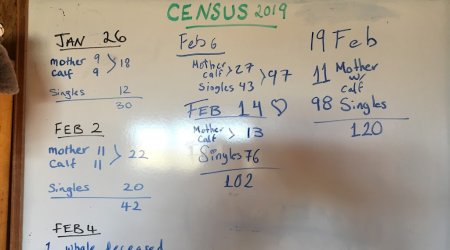 CENSUS 2019
JAN 26
mother 9 > 18
calf 9
Singles 12
30
FEB 2
mother 11 > 22
calf 11
Singles 20
42
FEB 4
1 whale deceased
Feb 6
Mother > 27
calf
Singles 43 > 97
FEB 14 ♡
Mother > 13
Calf
Singles 76
102
19 Feb
11 Mother
w/
calf
98 Singles
120